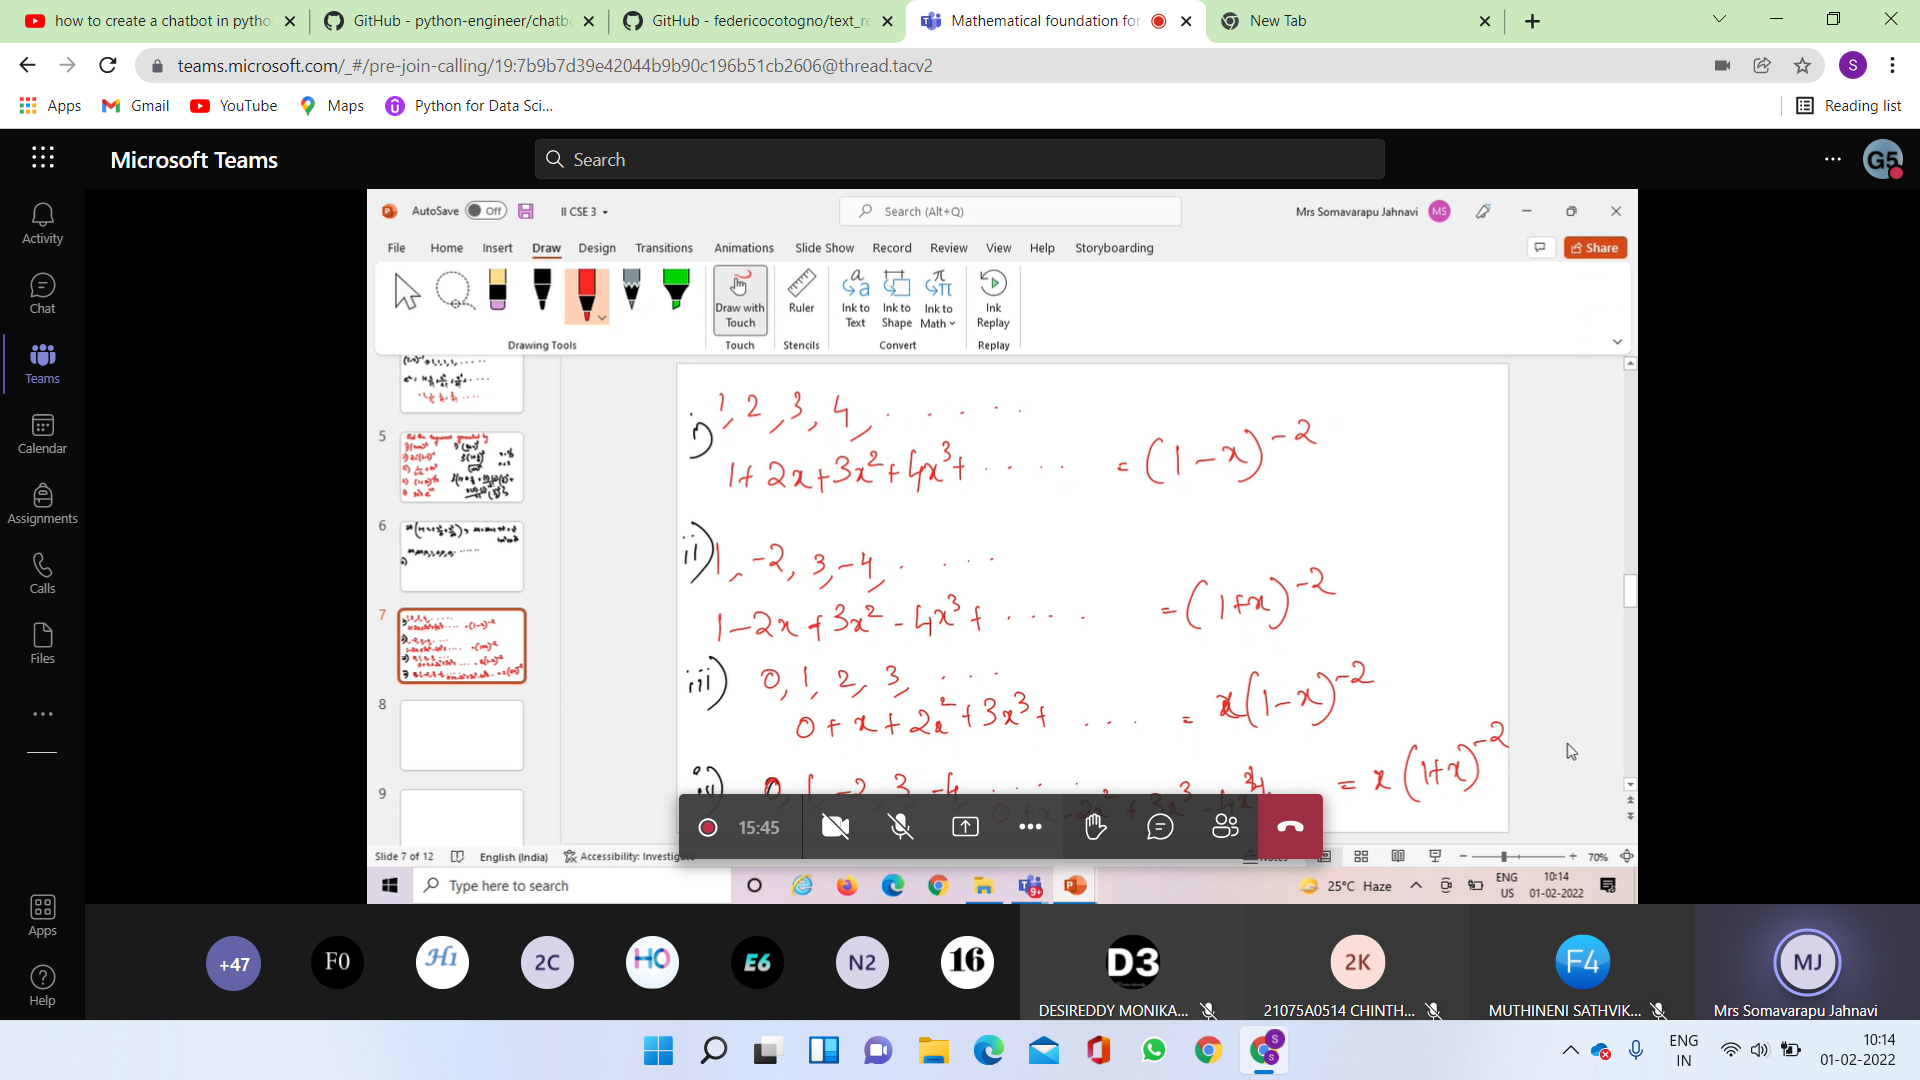 how to create a chatbot in pytho
GitHub - python-engineer/chatb
GitHub - federicocotogno/text_re
Mathematical foundation for
New Tab
teams.microsoft.com/_#/pre-join-calling/19:7b9b7d39e42044b9b90c196b51cb2606@thread.tacv2
S
Apps
Gmail
YouTube
Maps
Python for Data Sci...
Reading list
Microsoft Teams
Search
G5
Activity
Chat
Teams
Calendar
Assignments
Calls
Files
Apps
Help
AutoSave Off
II CSE 3
Search (Alt+Q)
Mrs Somavarapu Jahnavi MS
File Home Insert Draw Design Transitions Animations Slide Show Record Review View Help Storyboarding
Share
Draw with Touch
Ruler
Ink to Text
Ink to Shape
Ink to Math
Ink Replay
Drawing Tools Touch Stencils Convert Replay
5
6
7
8
9
i) 1, 2, 3, 4, . . . . .
1+2x+3x²+4x³+ . . . . . = (1-x)⁻²
ii) 1, -2, 3, -4, . . . .
1-2x+3x²-4x³+ . . . . = (1+x)⁻²
iii) 0, 1, 2, 3, . . .
0+x+2x²+3x³+ . . . = x(1-x)⁻²
iv) 0, 1, -2, 3, -4, . . . .
= x(1+x)⁻²
15:45
Slide 7 of 12
English (India)
Accessibility: Investiga
Notes
70%
Type here to search
9+
25°C Haze
ENG
US
10:14
01-02-2022
+47
F0
H1
2C
HO
E6
N2
16
D3
DESIREDDY MONIKA...
2K
21075A0514 CHINTH...
F4
MUTHINENI SATHVIK...
MJ
Mrs Somavarapu Jahnavi
ENG
IN
10:14
01-02-2022